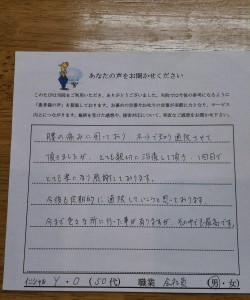 あなたの声をお聞かせください
このたびは当院をご利用いただき、ありがとうございました。当院では今後の参考になるように
「患者様の声」を募集しております。お客様の
サービス
向上につながります。施術を受けた感想や、接客対応について、率直なご感想をお聞かせ下さい。
腰の痛みに困っており、ネットで知り通院させて
頂きましたが、とても親切に治療して頂き、1回目で
とても楽になり感謝しております。
今後も定期的に通院していこうと思っております。
今まで色々な所に行った事が有りますが、その中でも最高です。
イニシャル Y・O (50代) 職業 会社員 (男・女)